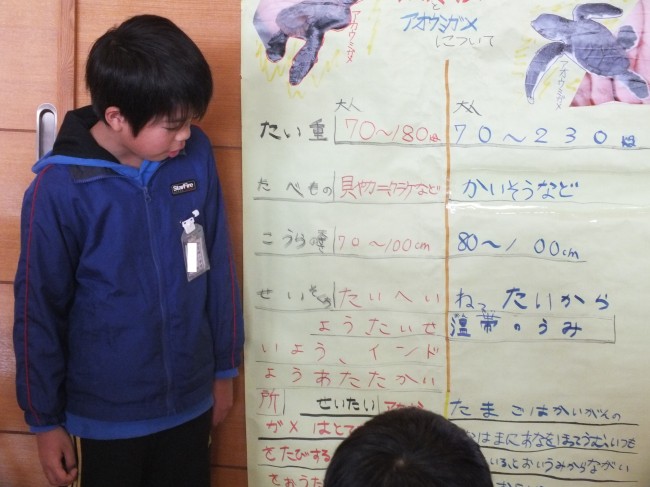 と
アオウミガメ
について
アオウミガメ
アオウミガメ
大人
大人
たい重 70〜180kg 70〜230kg
たべもの 貝やカニ クラゲなど かいそうなど
こうらの長さ 70〜100cm 80〜100cm
せいそく たいへい ねったいから
ようたいせ 温帯のうみ
いよう、インド
ようあたたかい
所 せいたい たまごはかいがんの
ガメはと すなはまにあなをほってうむ、いつも
をたびする おいうみからながい
をおうだ
StarFire